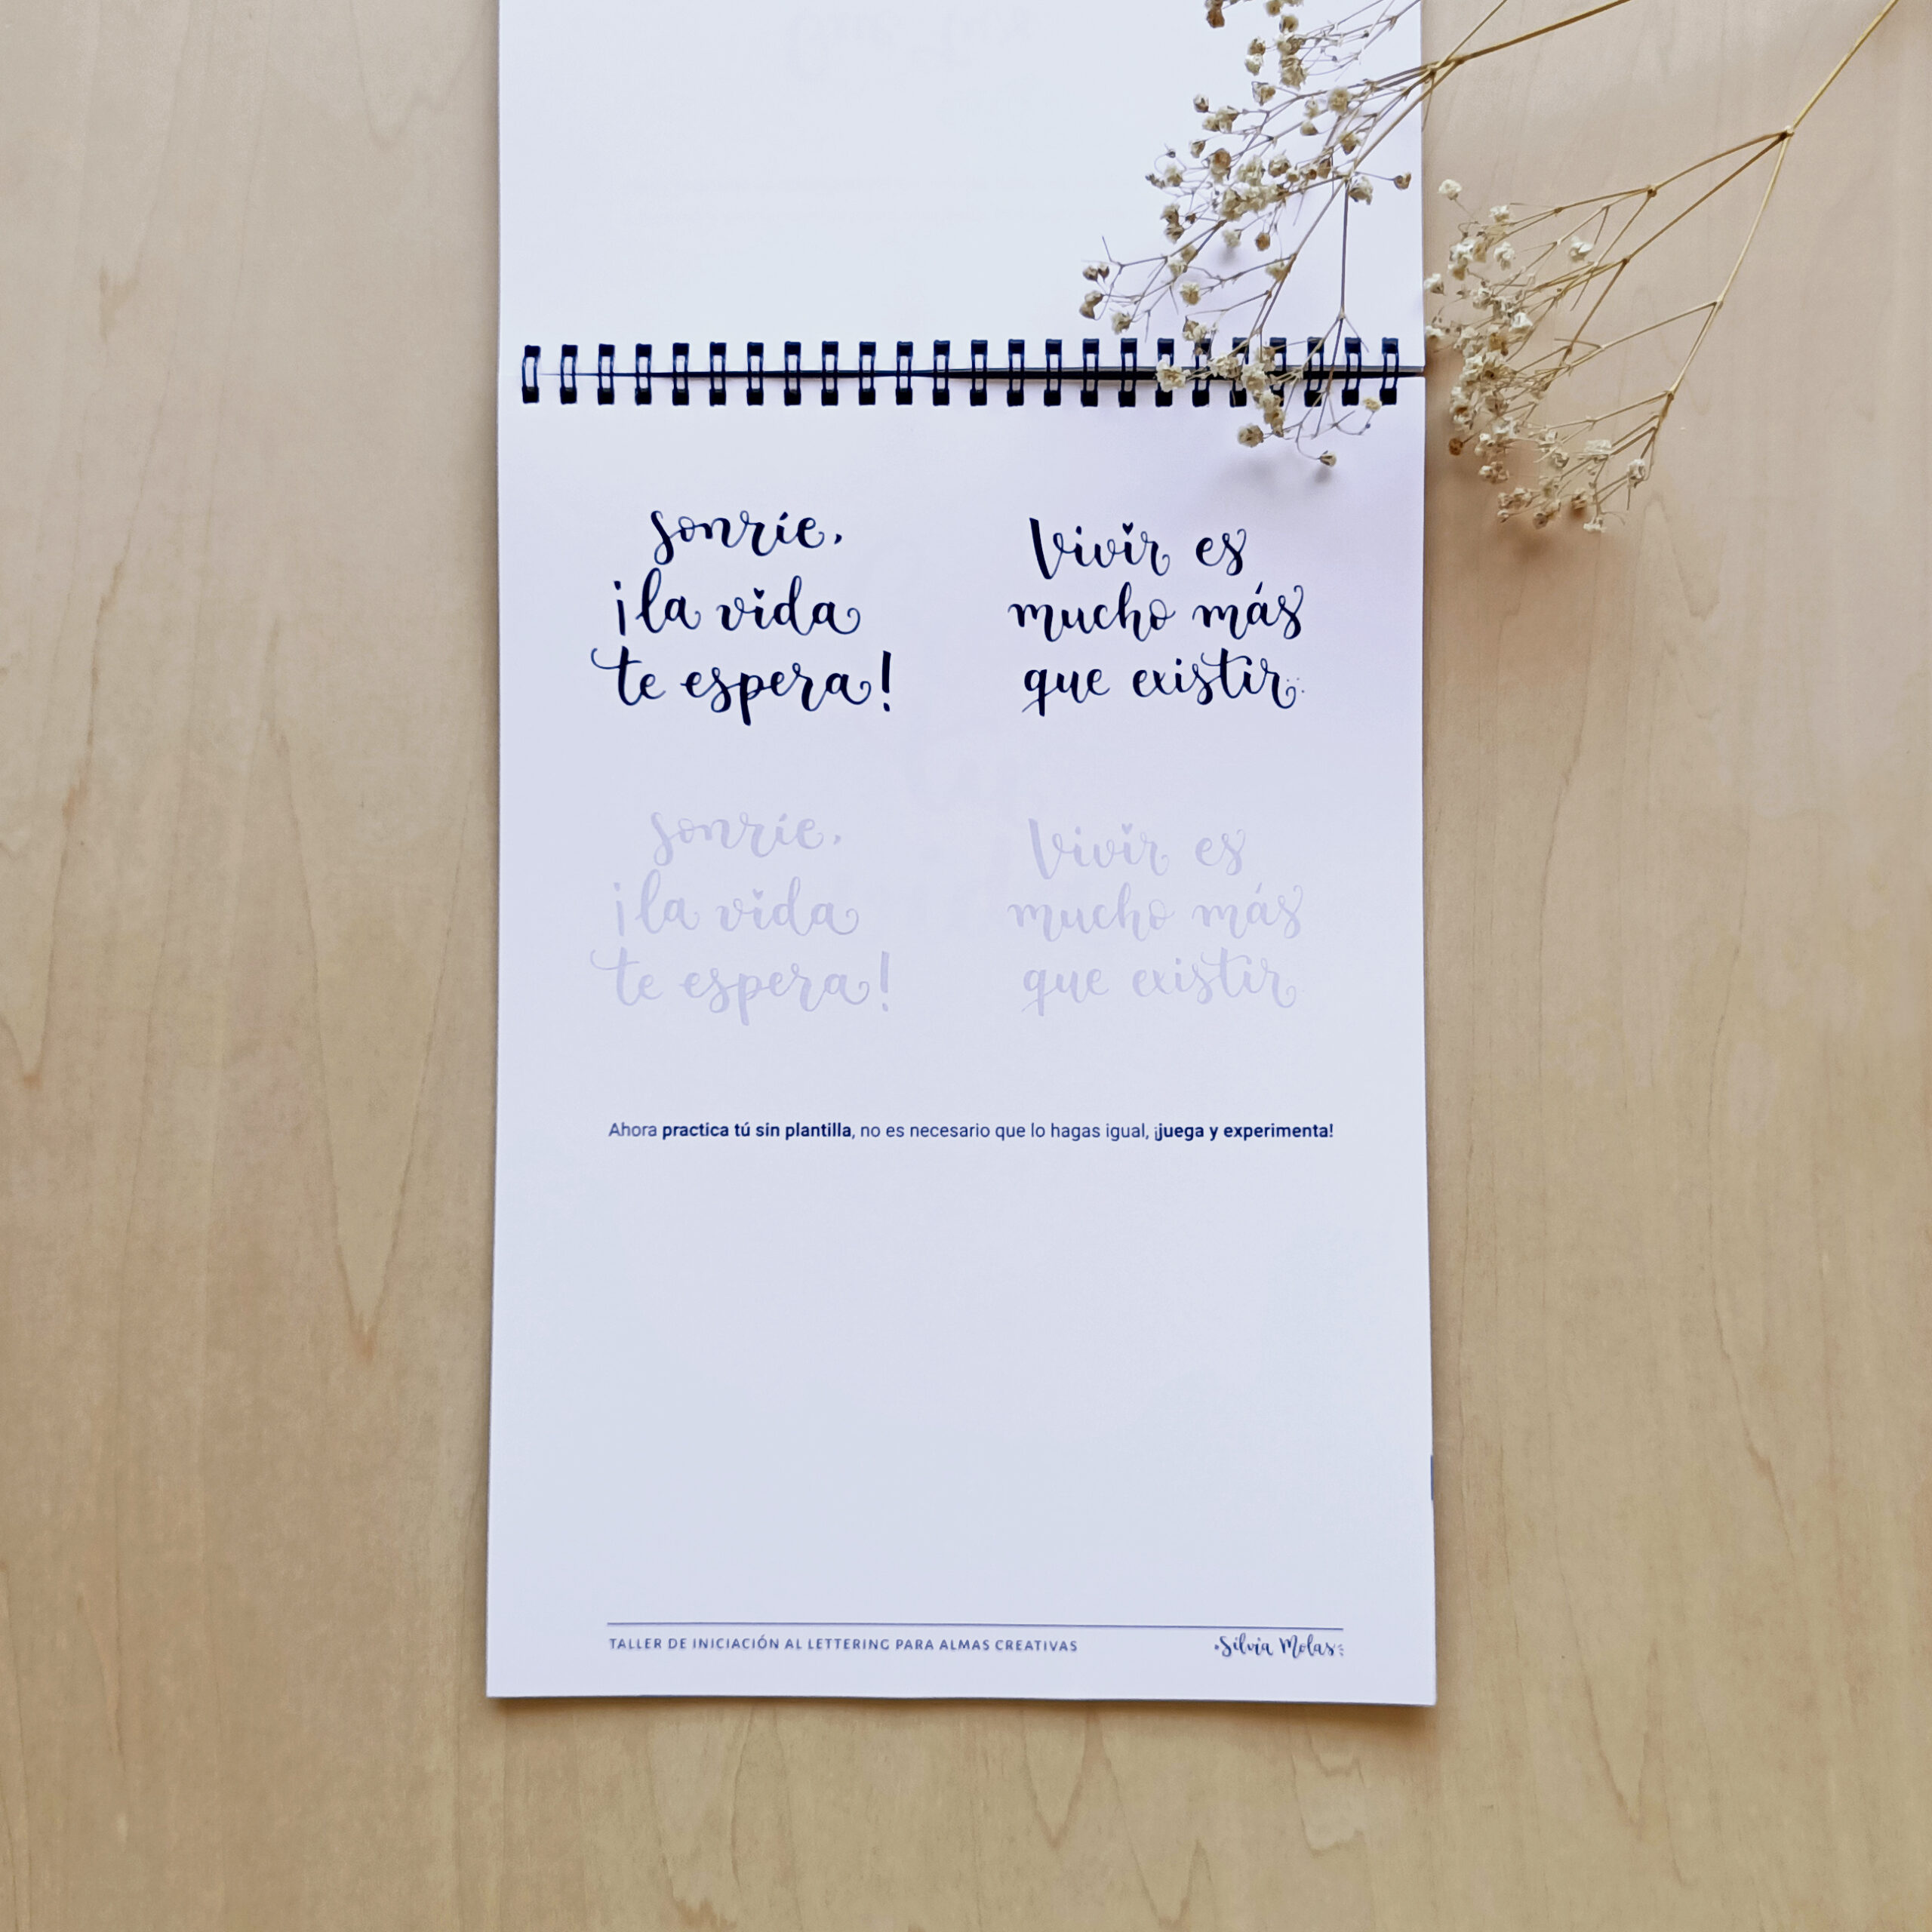 sonríe,
¡la vida
te espera!
Vivir es
mucho más
que existir
sonríe,
¡la vida
te espera!
Vivir es
mucho más
que existir
Ahora practica tú sin plantilla, no es necesario que lo hagas igual, ¡juega y experimenta!
TALLER DE INICIACIÓN AL LETTERING PARA ALMAS CREATIVAS
Silvia Molas